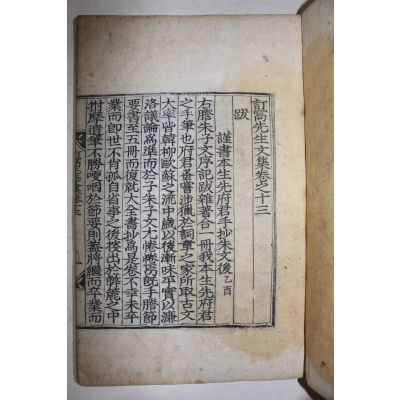 訂窩先生文集卷之十三
跋
謹書本生先府君手抄朱文後乙酉
右謄朱子文序記跋雜著合一冊我本生先府君
之手筆也府君蚤嘗涉獵於詞章之家所取古文
大率皆韓柳歐蘇之流中歲以後漸味平實以濂
洛議論爲準而於子朱子文尤惓惓焉旣手謄節
要書至五冊而復就大全書抄爲是卷不幸未卒
業而卽世不肖孤自省事之後搜出於弊簏之中
拊摩遺筆不勝哽咽於節要則蓋將繼而卒業而